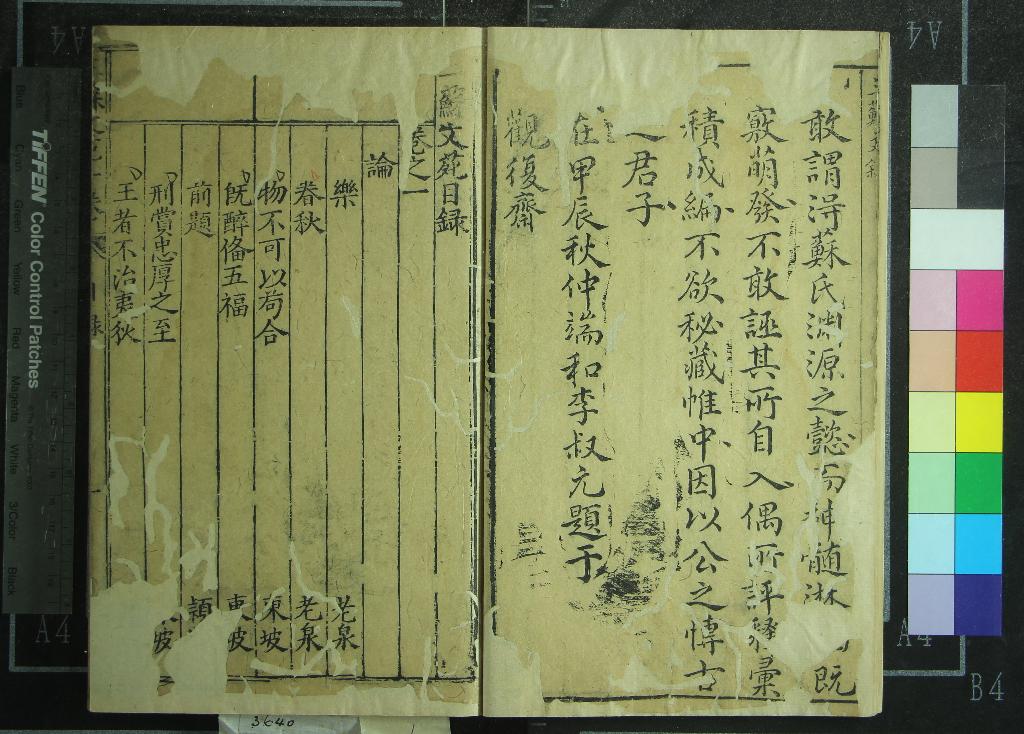 敢謂淂蘇氏渊源之懿而神髄淋 既
竅萌發不敢誣其所自入偶所評繹彙
積成編不欲秘藏帷中因以公之慱古
君子
在甲辰秋仲端和李叔元題于
觀復齋
蘇文苑目録
卷之一
論
樂 老泉
春秋 老泉
物不可以茍合 東坡
旣醉俻五福 東坡
前題 穎
刑賞忠厚之至 坡
王者不治夷狄
TIFFEN Color Control Patches
Blue
Cyan
Green
Yellow
Red
Magenta
White
3/Color
Black
A4
A4
A4
A4
B4
3640